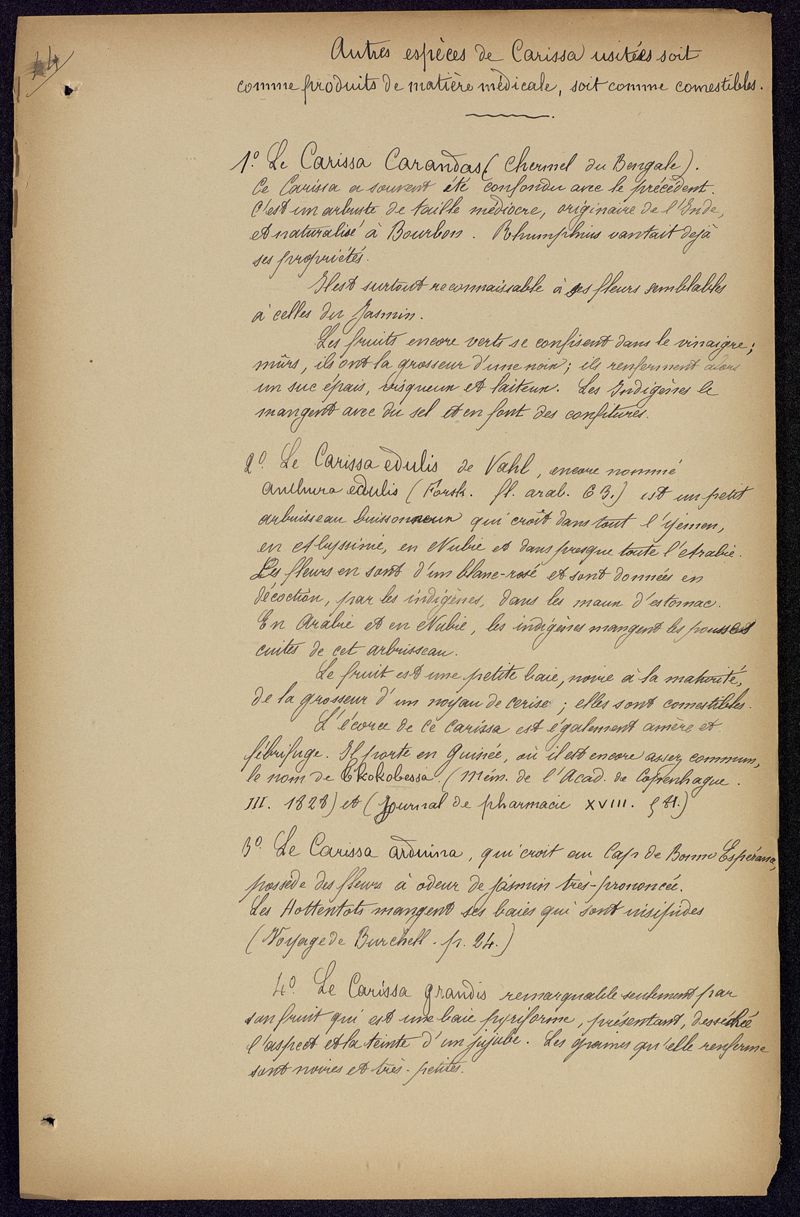 44
Autres espèces de Carissa usitées soit
comme produits de matière médicale, soit comme comestibles.
1º. Le Carissa Carandas (Chermel du Bengale).
Ce Carissa a souvent été confondu avec le précédent.
C'est un arbuste de taille médiocre, originaire de l'Inde,
et naturalisé à Bourbon. Rhumphius vantait dejà
ses propriétés.
Il est surtout reconnaissable à ses fleurs semblables
à celles du Jasmin.
Les fruits encore verts se confisent dans le vinaigre;
mûrs, ils ont la grosseur d'une noix; ils renferment alors
un suc épais, visqueux et laiteux. Les Indigènes le
mangent avec du sel et en font des confitures.
2º. Le Carissa edulis de Vahl, encore nommé
Anthura edulis (Forsk. fl. arab. 63.) est un petit
arbuisseau buissonneux qui croît dans tout l'yémen,
en Abyssinie, en Nubie et dans presque toute l'Arabie.
Les fleurs en sont d'un blanc-rosé et sont données en
décoction, par les indigènes, dans les maux d'estomac.
En Arabie et en Nubie, les indigènes mangent les pousses
cuites de cet arbrisseau.
Le fruit est une petite baie, noire à la maturité,
de la grosseur d'un noyau de cerise; elles sont comestibles.
L'écorce de ce Carissa est également amère et
fébrifuge. Il porte en Guinée, où il est encore assez commun,
le nom de Ekokobessa. (Mém. de l'Acad. de Copenhague.
III. 1828) et (Journal de pharmacie XVIII.
3º. Le Carissa arduina, qui croit au Cap de Bonne Espérance,
possède des fleurs à odeur de jasmin très-prononcée.
Les Hottentots mangent ses baies qui sont insipides
(Voyage de Burchell. p. 24.)
4º Le Carissa grandis remarquable seulement par
son fruit qui est une baie pyriforme, présentant, desséchée
l'aspect et la teinte d'un jujube. Les graines qu'elle renferme
sont noires et très-petites.